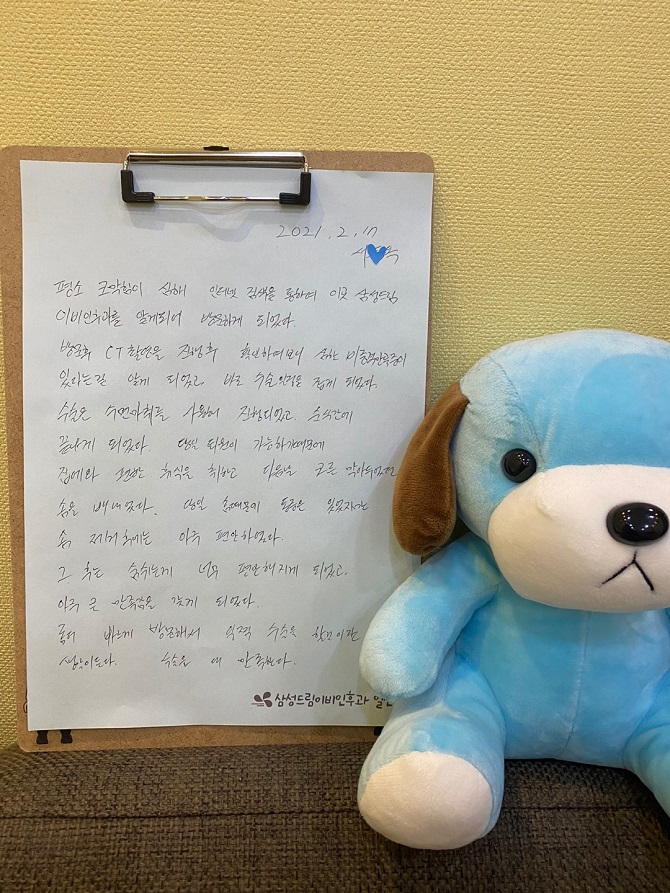 2021. 2. 17
서 옥
평소 코막힘이 심해 인터넷 검색을 통하여 이곳 삼성드림
이비인후과를 알게되어 방문하게 되었다.
방문후 CT 촬영을 진행후 확인하여보니 심한 비중격만곡증이
있다는걸 알게 되었고 바로 수술일정을 잡게 되었다.
수술은 수면마취를 사용해 진행되었고, 순식간에
끝나게 되었다. 당일 퇴원이 가능하기때문에
집에와 휴식을 취하고 다음날 코를 막아두었던
솜을 빼내었다. 당일 솜때문에 통증은 있었지만
솜 제거후에는 아주 편안하였다.
그 후는 숨쉬는게 너무 편안해지게 되었고,
아주 큰 만족감을 갖게 되었다.
좀더 빠르게 방문해서 일찍 수술을 할껄이란
생각이든다. 수술을 해 만족한다.
삼성드림이비인후과